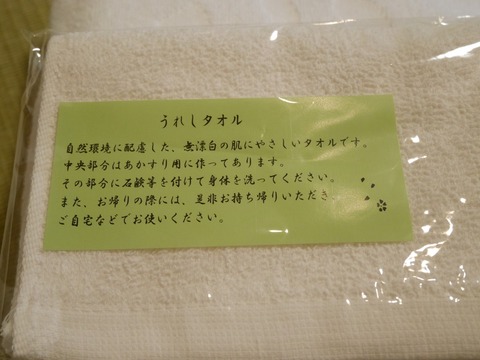 うれしタオル
自然環境に配慮した、無漂白の肌にやさしいタオルです。
中央部分はあかすり用に作ってあります。
その部分に石鹸等を付けて身体を洗ってください。
また、お帰りの際には、是非お持ち帰りいただき
ご自宅などでお使いください。